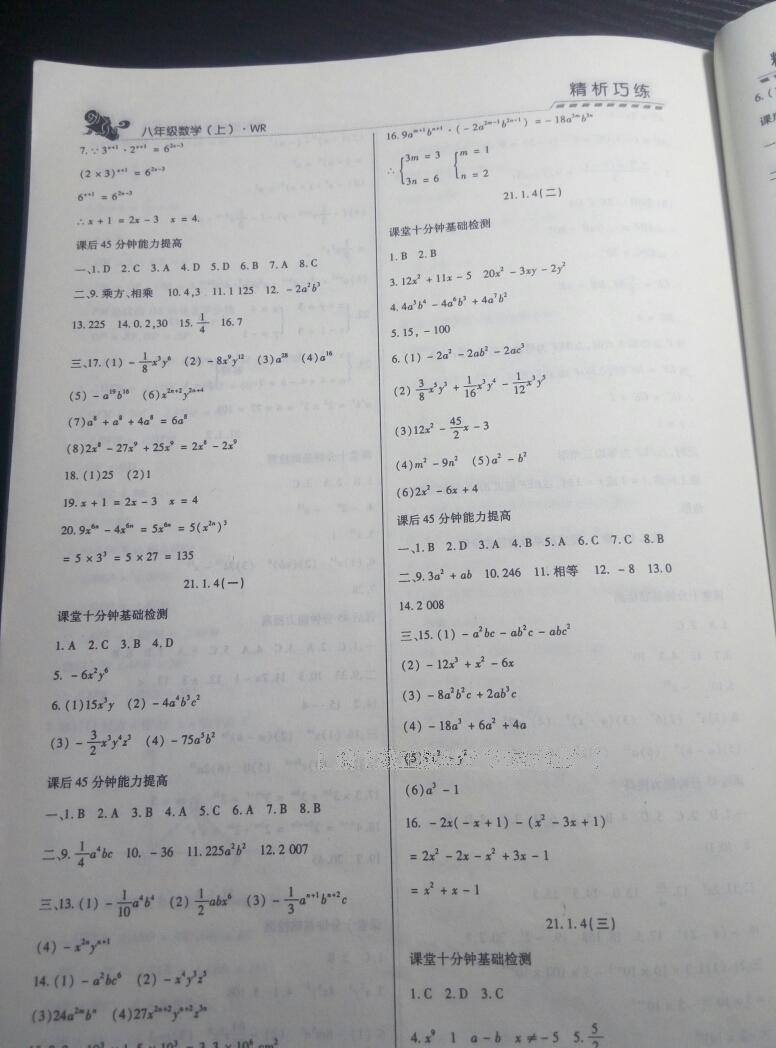 精析巧练
八年级数学(上)·WR
7.∵3ˣ⁺¹·2ˣ⁺¹=6²ˣ⁻³
(2×3)ˣ⁺¹=6²ˣ⁻³
6ˣ⁺¹=6²ˣ⁻³
∴x+1=2x-3 x=4.
课后45分钟能力提高
一、1.D 2.C 3.A 4.D 5.D 6.B 7.A 8.C
二、9.乘方、相乘 10.4,3 11.1 125 12.-2a²b³
13.225 14.0,2,30 15.1/4 16.7
三、17.(1)-1/8x³y⁶ (2)-8x⁹y¹² (3)a²⁸ (4)a¹⁶
(5)-a¹⁹b¹⁶ (6)x²ⁿ⁺²y²ⁿ⁺⁴
(7)a⁸+a⁸+4a⁸=6a⁸
(8)2x⁸-27x⁹+25x⁹=2x⁸-2x⁹
18.(1)25 (2)1
19.x+1=2x-3 x=4
20.9x⁶ⁿ-4x⁶ⁿ=5x⁶ⁿ=5(x²ⁿ)³
=5×3³=5×27=135
21.1.4(一)
课堂十分钟基础检测
1.A 2.C 3.B 4.D
5.-6x²y⁶
6.(1)15x³y (2)-4a⁴b³c²
(3)-3/2x³y⁴z³ (4)-75a⁵b²
课后45分钟能力提高
一、1.B 2.A 3.B 4.A 5.C 6.A 7.B 8.B
二、9.1/4a⁴bc 10.-36 11.225a²b² 12.2 007
三、13.(1)-1/10a⁴b⁴ (2)1/2abx⁶ (3)-1/3aⁿ⁺¹bⁿ⁺²c
(4)-x²ⁿyⁿ⁺¹
14.(1)-a²bc⁶ (2)-x⁴y³z⁵
(3)24a²ᵐbⁿ (4)27x²ⁿ⁺²yⁿ⁺²z³ⁿ
16.9aᵐ⁺¹bⁿ⁺¹·(-2a²ᵐ⁻¹b²ⁿ⁻¹)=-18a³ᵐb³ⁿ
∴{3m=3 {m=1
3n=6 n=2
21.1.4(二)
课堂十分钟基础检测
1.B 2.B
3.12x²+11x-5 20x²-3xy-2y²
4.4a⁵b⁴-4a⁶b³+4a⁷b²
5.15,-100
6.(1)-2a²-2ab²-2ac³
(2)3/8x⁵y³+1/16x³y⁴-1/12x³y⁵
(3)12x²-45/2x-3
(4)m²-9n² (5)a²-b²
(6)2x²-6x+4
课后45分钟能力提高
一、1.B 2.D 3.A 4.B 5.A 6.C 7.C 8.B
二、9.3a²+ab 10.246 11.相等 12.-8 13.0
14.2 008
三、15.(1)-a²bc-ab²c-abc²
(2)-12x³+x²-6x
(3)-8a²b²c+2ab³c
(4)-18a³+6a²+4a
(6)a³-1
16.-2x(-x+1)-(x²-3x+1)
=2x²-2x-x²+3x-1
=x²+x-1
21.1.4(三)
课堂十分钟基础检测
1.C 2.D 3.C
4.x⁹ 1 a-b x≠-5 5.5/2